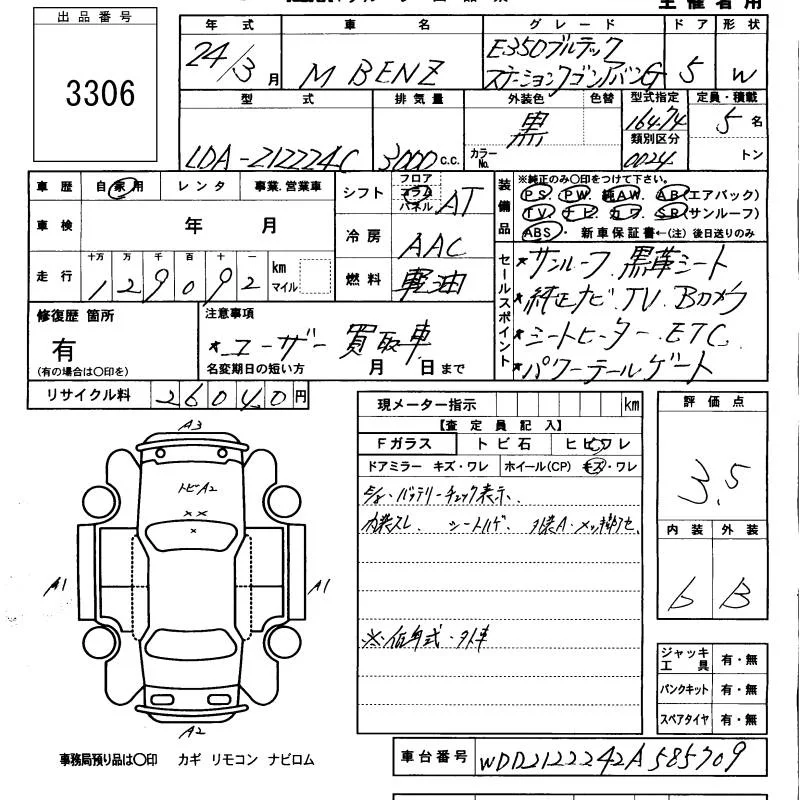 主催者用
出品番号
3306
年式 車名 グレード ドア 形状
24/3月 M BENZ E350ブルテック ステーションワゴンアバンG 5 W
型式 排気量 外装色 色替 型式指定 定員・積載
LDA-212224C 3000 c.c. 黒 カラーNo. 164.74 5名
類別区分
0024 トン
車歴 自家用 レンタ 事業.営業車
車検 年 月
走行 十万 万 千 百 十 一
129092 km マイル
シフト フロア コラム パネル AT
冷房 AAC
燃料 軽油
装備品 ※純正のみ○印をつけて下さい。
PS. PW. 純AW. AB(エアバック)
TV. ナビ. カワ. SR(サンルーフ)
ABS・ 新車保証書←(注) 後日送りのみ
セールスポイント
*サンルーフ.黒革シート
*純正ナビ.TV.Bカメラ
*シートヒーター.ETC.
*パワーテールゲート
修復歴 箇所
有
(有の場合は○印を)
注意事項
*ユーザー買取車
名変期日の短い方 月 日まで
リサイクル料 26040円
現メーター指示 km
【査定員記入】
Fガラス トビ石 ヒビワレ
ドアミラー キズ・ワレ ホイール(CP) キズ・ワレ
バッテリーチェック表示.
内装スレ. シートハゲ. 外装A・メッキ
※.低年式・
評価点
3.5
内装 外装
b B
ジャッキ工具 有・無
パンクキット 有・無
スペアタイヤ 有・無
A3
トビA2
××
×
A1
A1
A2
事務局預り品は○印 カギ リモコン ナビロム
車台番号 WDD2122242A585709